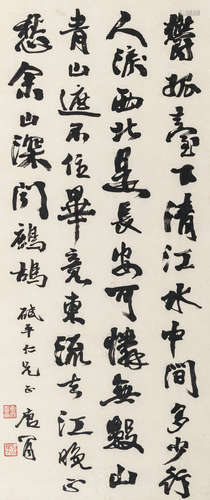 鬱孤臺下清江水中間多少行
人淚西北是長安可憐無數山
青山遮不住畢竟東流去江晚正
愁余山深聞鷓鴣
破平仁兄正